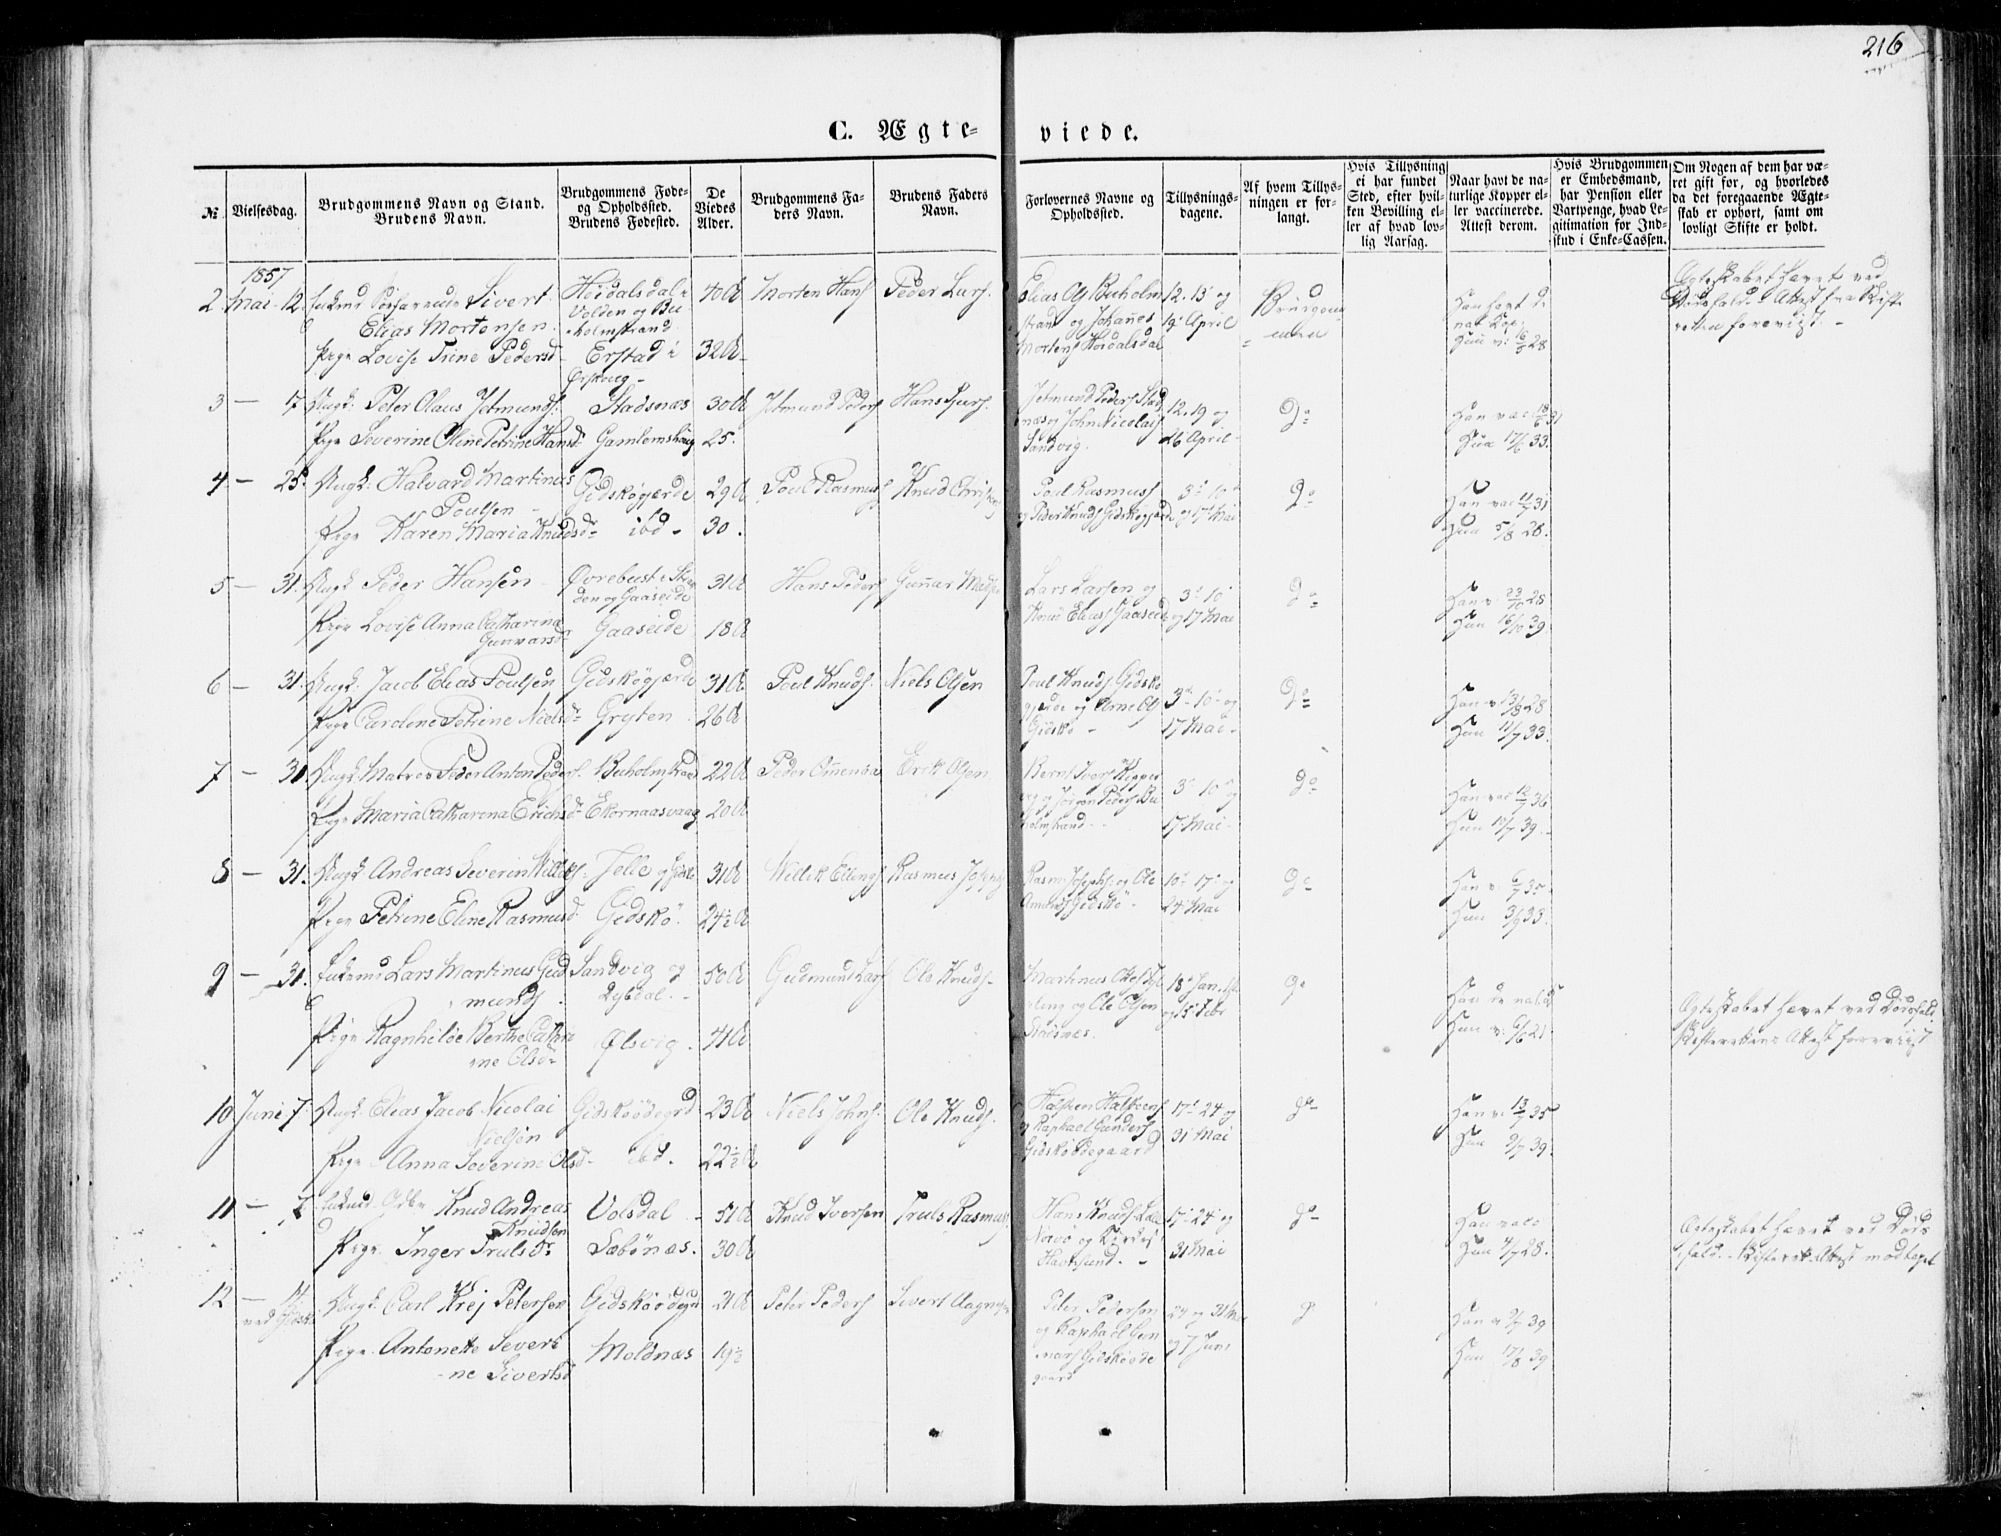 216
C. Ægte-
viede.
№.
Vielsesdag.
Brudgommens Navn og Stand.
Brudens Navn.
Brudgommens Føde-
og Opholdssted.
Brudens Fødested.
De
Viedes
Alder.
Brudgommens Fa-
ders Navn.
Brudens Faders
Navn.
Forlovernes Navne og
Opholdssted.
Tillysnings-
dagene.
Af hvem Tillys-
ningen er for-
langt.
Hvis Tillysning
ei har fundet
Sted, efter hvil-
ken Bevilling el-
ler af hvad lov-
lig Aarsag.
Naar havt de na-
turlige Kopper el-
ler vaccinerede.
Attest derom.
Hvis Brudgommen
er Embedsmand,
har Pension eller
Vartpenge, hvad Le-
gitimation for Ind-
skud i Enke-Cassen.
Om Nogen af dem har væ-
ret gift før, og hvorledes
da det foregaaende Ægte-
skab er ophørt, samt om
lovligt Skifte er holdt.
1857
2 Mai 12 Sivert
Elias Mortensen
Pige Lovise Trine Pedersd
Høidalsdal i
Volden og Bu-
holmstrand
Erstad i
Ørskoug
40 A
32 A
Morten Hans
Peder Lars.
Elias Ols Buholm
strand og Johanes
Mortens Høidalsdal
12. 15 og
19 April
Brudgom
men
Han havt d.
nat. Kop.
Hun v. 16/5 28
Ægteskabet hævet ved
Dødsfald. Attest fra Skifte
retten foreviist.
3 — 17 Ungk. Peter Olaus Jetmunds.
Pige Severine Oline Petrine Hansd
Stadsnæs
Gamlemshaug
30 A
25.
Jetmund Peders
Hans Sjurs.
Jetmund Peders Stad
næs og John Nicolais
Sandvig.
12. 19 og
26 April
Do
Han vac 18/6 31
Hun 17/6 33.
4 — 25. Ungk. Halvard Martinus
Poulsen
Pige Karen Maria Knudsd
Gidskøgjerde
ibd
29 A
30.
Poul Rasmuss
Knud
Poul Rasmuss
og Peder Knuds Gidskøgjerde
3. 10
og 17 Mai
Do
Han vac 11/7 31
Hun 5/8 28.
5 — 31. Ungk Peder Hansen
Pige Lovise Anna Catharina
Gunnarsd
Øvrebust i
den og Gaaseide
Gaaseide
31 A
18 A
Hans Peders
Gunnar
Lars Larsen og
Knud Elias Gaaseide
3. 10
og 17 Mai
Do
Han v. 23/10 28
Hun 16/10 39.
6 — 31. Ungk. Jacob Elias Poulsen
Pige Caroline Petrine Nielsd
Gidskøgjærde
Gryten
31 A
26 A
Poul Knuds.
Niels Olsen
Poul Knuds Gidskø
gjerde og Arne Ols
Gidskø
3. 10 og
17 Mai
Do
Han v. 13/8 28
Hun 11/7 33.
7 — 31 Ungk Matros Peder Anton Peders.
Pige Maria Catharina Erichsd
Buholmstrand
Ekornaasvaag
22 A
20 A
Peder
Erik Olsen
Bernt Ivers Kipper
og Jørgen Peders Bu
holmstrand
3. 10 og
17 Mai
Do
Han vac 12/7 36
Hun 10/7 39.
8 — 31. Ungk. Andreas Severin
Pige Petrine Eline Rasmusd
Gidskø.
31 A
24½ A
Rasmus
Rasm. Josephs. og Ole
Amunds Gidskø
10. 17 og
24 Mai
Do
Han v. 6/7 35
Hun 3/9 33.
9 — 31. Lars Martinus Gud
munds.
Pige Ragnhilde Berthe Cathri
ne Olsd
Sandvig og
Ølsvig
50 A
41 A
Gudmund Lars
Ole Knuds
Martinus
og Ole Olsen
18 Jan.
og 15 Febr
Do
Hun v. 6/6 21.
Ægteskabet hævet ved Dødsfald.
Skifterettens Attest foreviist
10 Juni 7. Ungk. Elias Jacob Nicolai
Nielsen
Pige Anna Severine Olsd
Gidskøødegrd
ibd.
23 A
22½ A
Niels Johns.
Ole Knuds.
og Raphael Gunders
Gidskøødegaard
17. 24 og
31 Mai
Do
Han v. 13/7 35
Hun 9/7 39.
11 — 7. Knud Andreas
Knudsen
Pige Inger Trulsd
Volsdal
Sæbønæs.
51 A
30 A
Knud Iversen
Truls Rasmus
Hans Knuds
17. 24 og
31 Mai
Do
Han vacc
Hun 4/7 28.
Ægteskabet hævet ved Døds
fald. Attest modtaget
12 — 14
ved Gidskø
Ungk. Carl Krej Petersen
Pige Antonette Severi
ne Sivertsd
Gidskøødegrd
Moldnæs
21 A
19½
Peter Peders
Sivert
Peter Pedersen
og Raphael Gun
ders Gidskøøde
gaard
24 og 31 Mai
og 7 Juni
Han v. 9/7 39
Hun 17/8 39